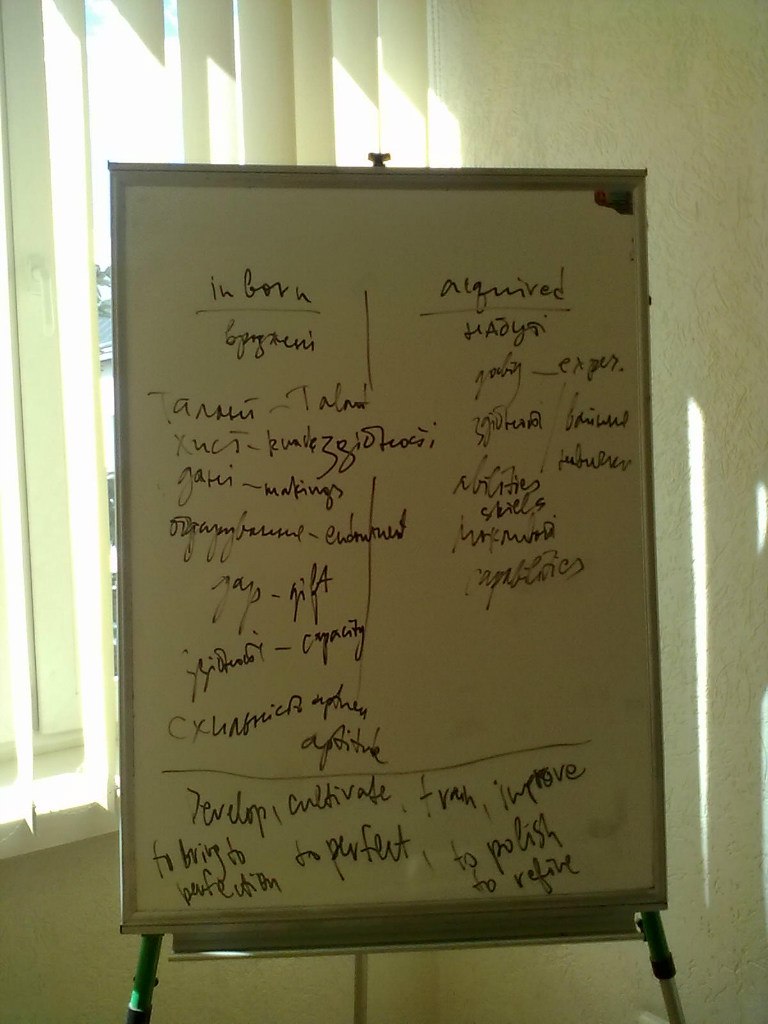 inborn
вроджені
Талант - Talent
хист - knack здібності
дані - makings
обдарування - endowment
дар - gift
здібності - capacity
Схильність
aptitude
acquired
набуті
exper.
здібності
вміння
abilities
skills
можливості
capabilities
Develop, cultivate, train, improve
to bring to perfection
to perfect, to polish
to refine